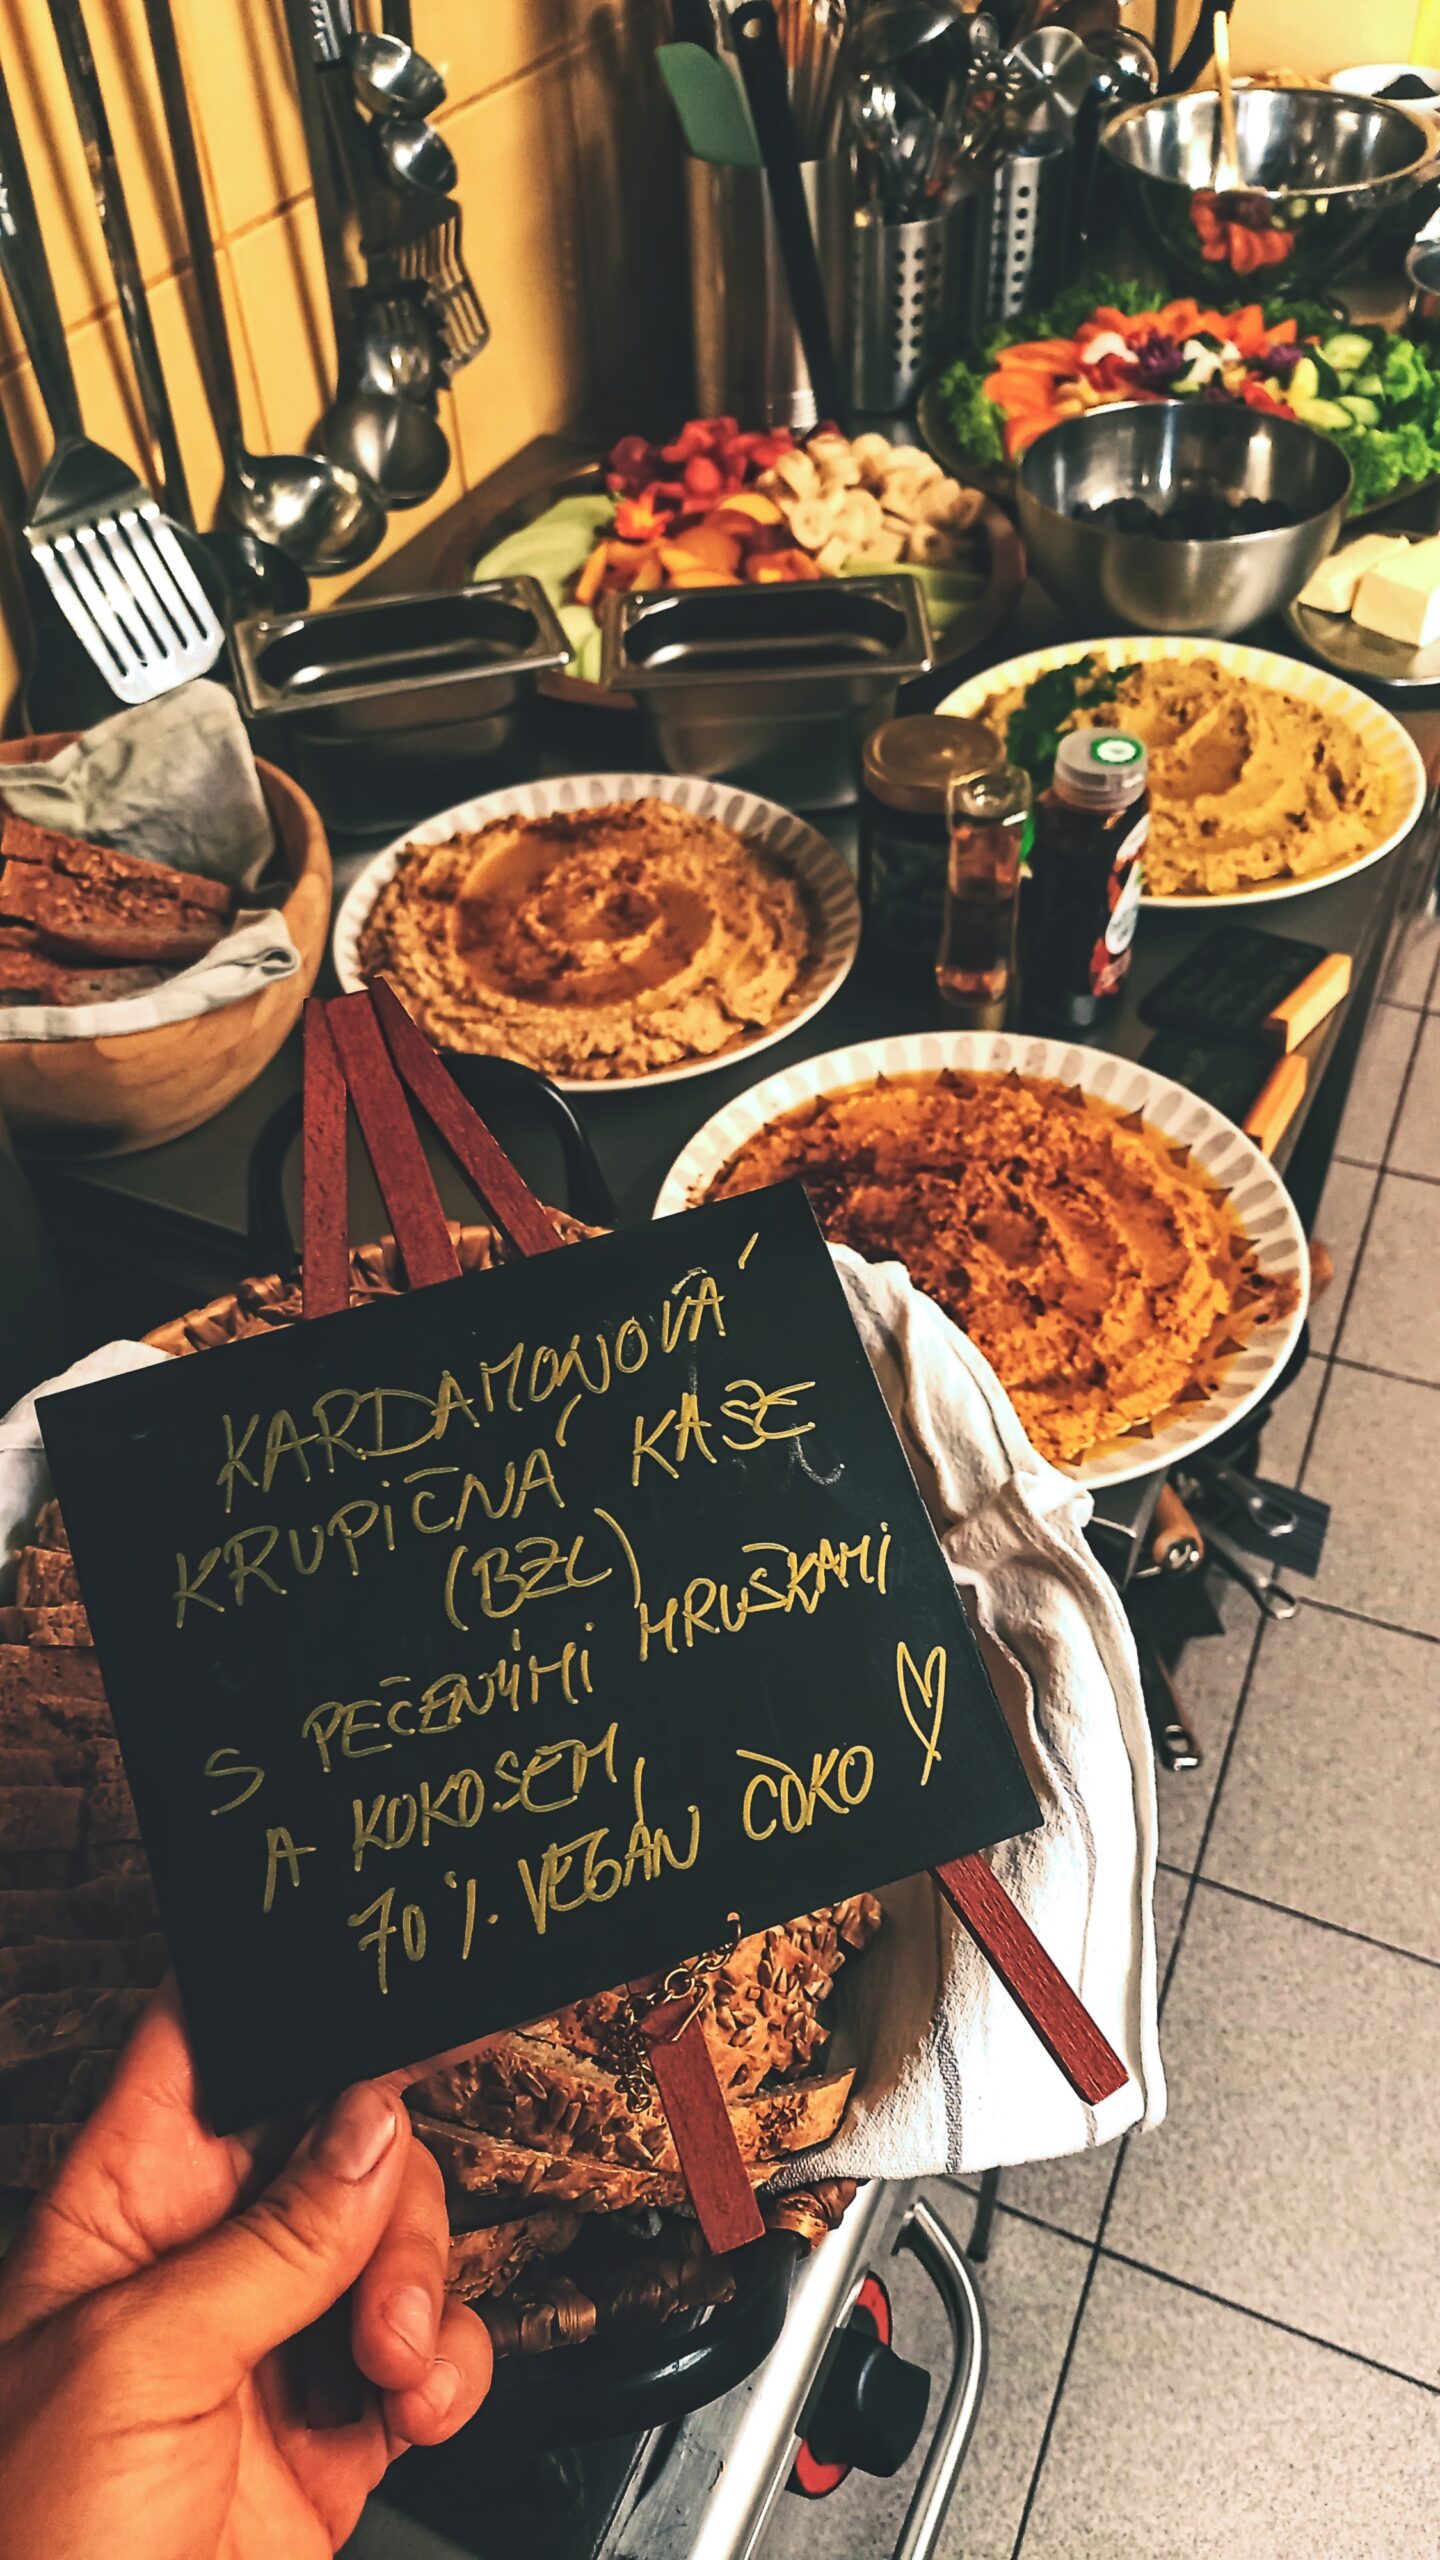 KARDAMONOVÁ
KRUPIČNÁ KAŠE
(BZL)
S PEČENÝMI HRUŠKAMI
A KOKOSEM,
70% VEGAN ČOKO